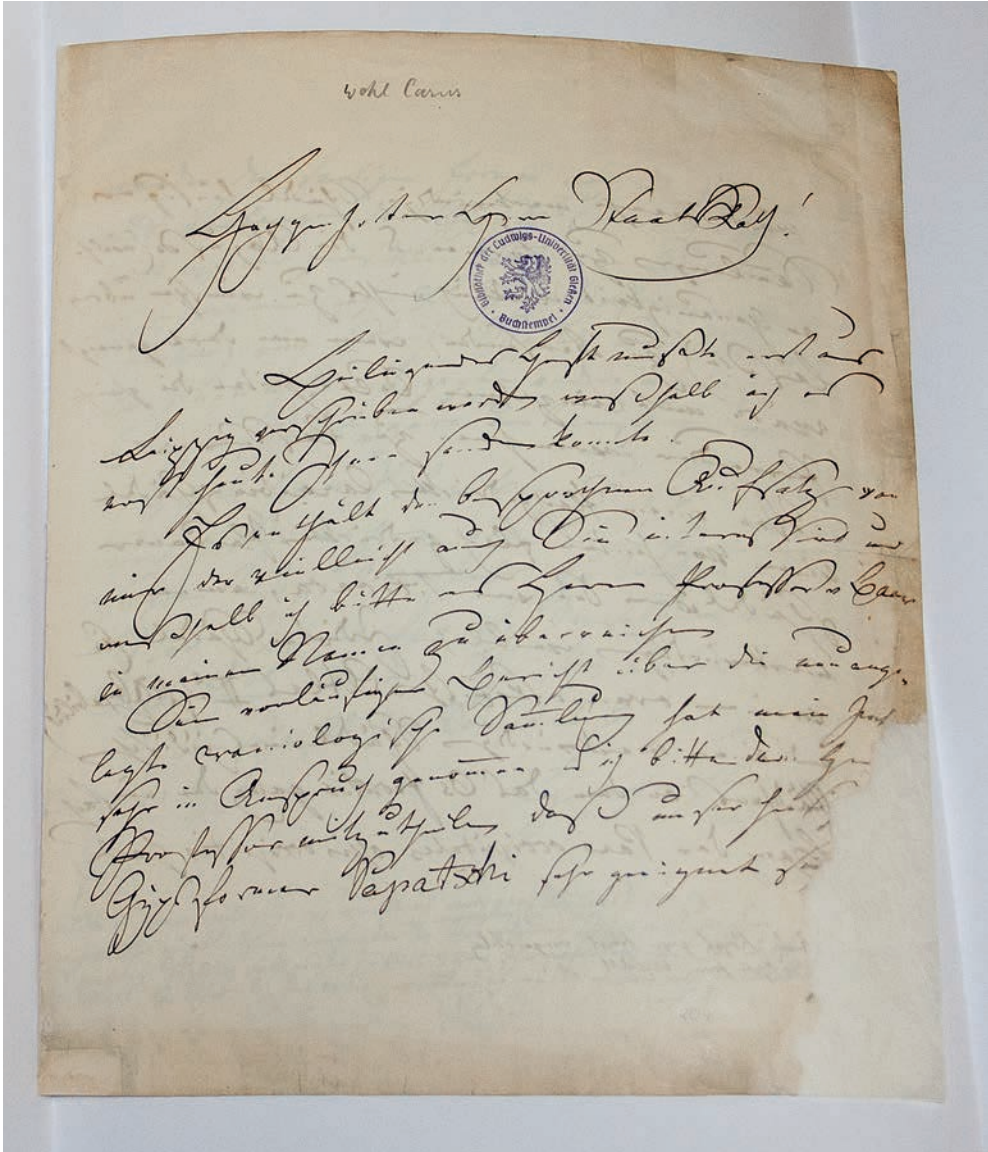 wohl Carus
Hochgeehrter Herr Staats Rath!
Bibliothek der Ludwigs-Universität Gießen · Buchstempel ·
Beiliegendes Heft mußte erst aus
Leipzig verschrieben werden weßhalb ich es
erst heute Ihnen senden konnte.
Es enthält den besprochenen Aufsatz von
mir der vielleicht auch Sie interessirt und
weßhalb ich bitte es Herrn Professor v Baer
in meinem Namen zu überreichen
Die vorläufige Bericht über die neuange-
legte craniologische Sammlung hat mich
sehr in Anspruch genommen u ich bitte dem
Professor mitzutheilen daß unser
Gypsformer Papatschi sehr geeignet